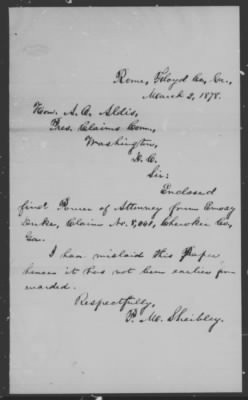 Rome, Floyd Co., Ga.,
March 2, 1878.
Hon. A. O. Aldis,
Pres. Claims Comm.,
Washington,
D. C.
Sir:
Enclosed
find Power of Attorney from
Claim No. Cherokee Co,
Ga.
I have mislaid this Paper
hence it has not been earlier for-
warded.
Respectfully,
P. M. Sheibley.